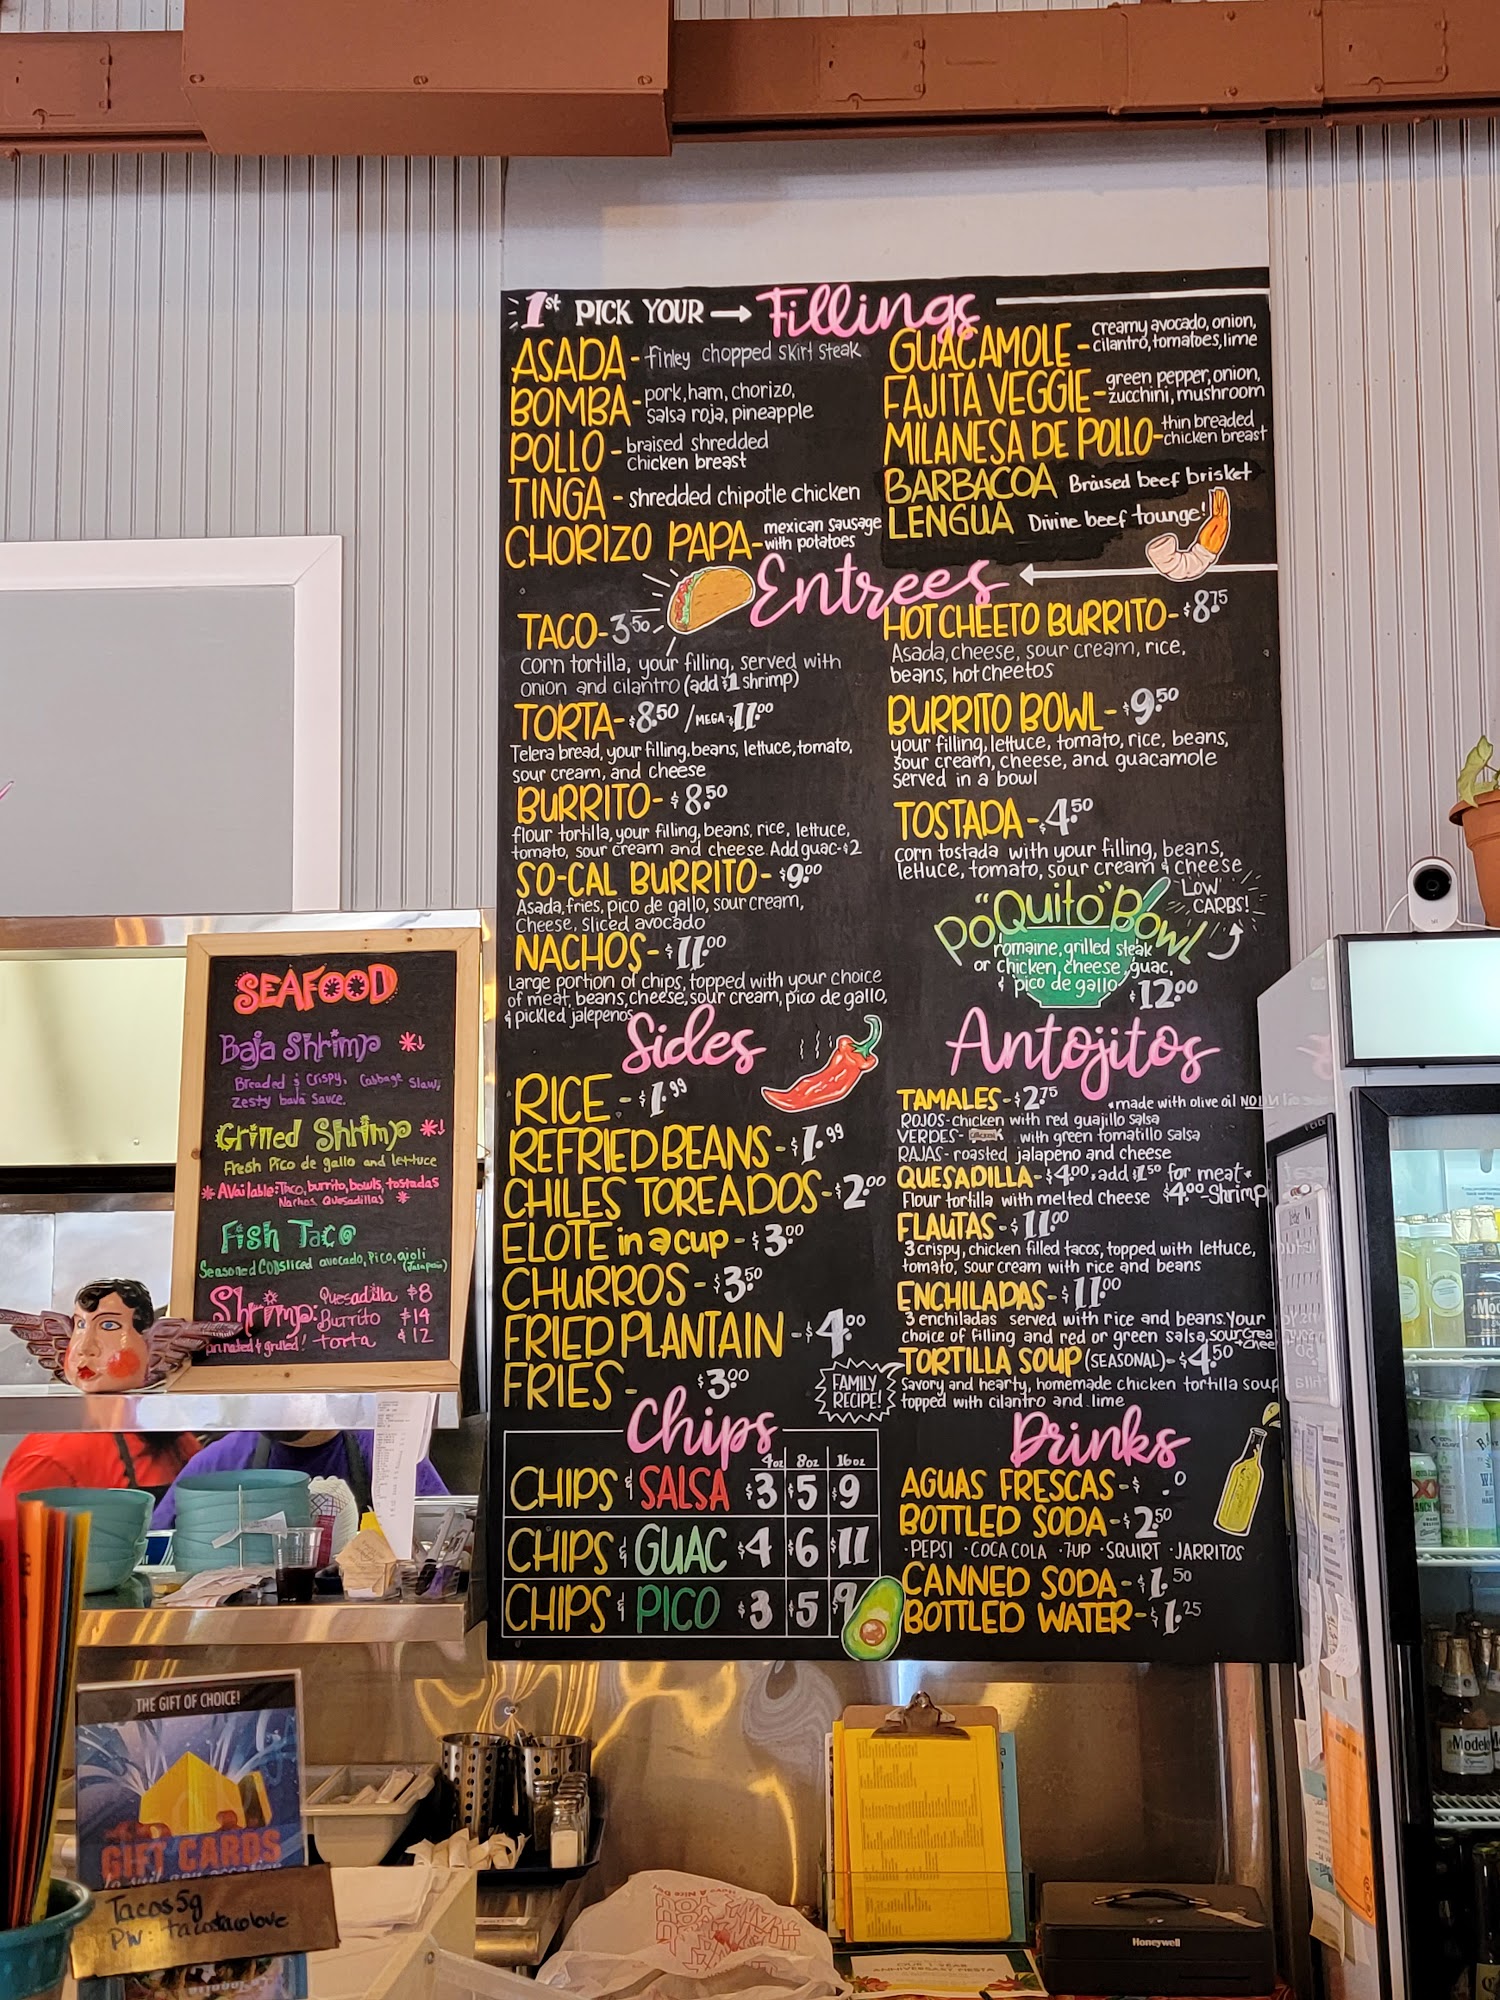 1st PICK YOUR → Fillings
ASADA - finley chopped skirt steak
BOMBA - pork, ham, chorizo,
salsa roja, pineapple
POLLO - braised shredded
chicken breast
TINGA - shredded chipotle chicken
CHORIZO PAPA - mexican sausage
with potatoes
GUACAMOLE - creamy avocado, onion,
cilantro, tomatoes, lime
FAJITA VEGGIE - green pepper, onion,
zucchini, mushroom
MILANESA DE POLLO - thin breaded
chicken breast
BARBACOA Braised beef brisket
LENGUA Divine beef tounge!
Entrees
TACO - 3.50
corn tortilla, your filling, served with
onion and cilantro (add $1 shrimp)
TORTA - $8.50 / MEGA - $11.00
Telera bread, your filling, beans, lettuce, tomato,
sour cream, and cheese
BURRITO - $8.50
flour tortilla, your filling, beans, rice, lettuce,
tomato, sour cream and cheese. Add guac - $2
SO-CAL BURRITO - $9.00
Asada, fries, pico de gallo, sour cream,
Cheese, sliced avocado
NACHOS - $11.00
Large portion of chips, topped with your choice
of meat, beans, cheese, sour cream, pico de gallo,
& pickled jalepenos
HOT CHEETO BURRITO - $8.75
Asada, cheese, sour cream, rice,
beans, hot Cheetos
BURRITO BOWL - $9.50
your filling, lettuce, tomato, rice, beans,
sour cream, cheese, and guacamole
served in a bowl
TOSTADA - $4.50
corn tostada with your filling, beans,
lettuce, tomato, sour cream & cheese
"PoQuito" Bowl
LOW
CARBS!
romaine, grilled steak
or chicken, cheese, guac,
& pico de gallo $12.00
Sides
RICE - $1.99
REFRIED BEANS - $1.99
CHILES TOREADOS - $2.00
ELOTE in a cup - $3.00
CHURROS - $3.50
FRIED PLANTAIN - $4.00
FRIES - $3.00
Antojitos
TAMALES - $2.75 *made with olive oil NO
ROJOS - chicken with red guajillo salsa
VERDES - with green tomatillo salsa
RAJAS - roasted jalapeno and cheese
QUESADILLA - $4.00, add $1.50 for meat*
Flour tortilla with melted cheese $4.00 - Shrimp
FLAUTAS - $11.00
3 crispy, chicken filled tacos, topped with lettuce,
tomato, sour cream with rice and beans
ENCHILADAS - $11.00
3 enchiladas served with rice and beans. Your
choice of filling and red or green salsa, sour Crea
+ Chee
TORTILLA SOUP (SEASONAL) - $4.50
FAMILY
RECIPE!
Savory and hearty, homemade chicken tortilla soup
topped with cilantro and lime
Chips
4oz 8oz 16oz
CHIPS & SALSA $3 $5 $9
CHIPS & GUAC $4 $6 $11
CHIPS & PICO $3 $5 $9
Drinks
AGUAS FRESCAS - $ .0
BOTTLED SODA - $2.50
·PEPSI ·COCA COLA ·7UP ·SQUIRT ·JARRITOS
CANNED SODA - $1.50
BOTTLED WATER - $1.25
SEAFOOD
Baja Shrimp *!
Breaded & Crispy, Cabbage Slaw,
Zesty baja sauce.
Grilled Shrimp *!
Fresh Pico de gallo and lettuce
* Available: Taco, burrito, bowls, tostadas
Nachos Quesadillas *
Fish Taco
Seasoned COD sliced avocado, Pico, aioli
(Jalapeño)
Shrimp: Quesadilla $8
Burrito $14
& grilled! torta $12
THE GIFT OF CHOICE!
GIFT CARDS
Tacos5g
PW: tacotacolove
HAVE A NICE DAY
THANK YOU
Honeywell
OUR 1 YEAR
ANNIVERSARY FIESTA
Modelo